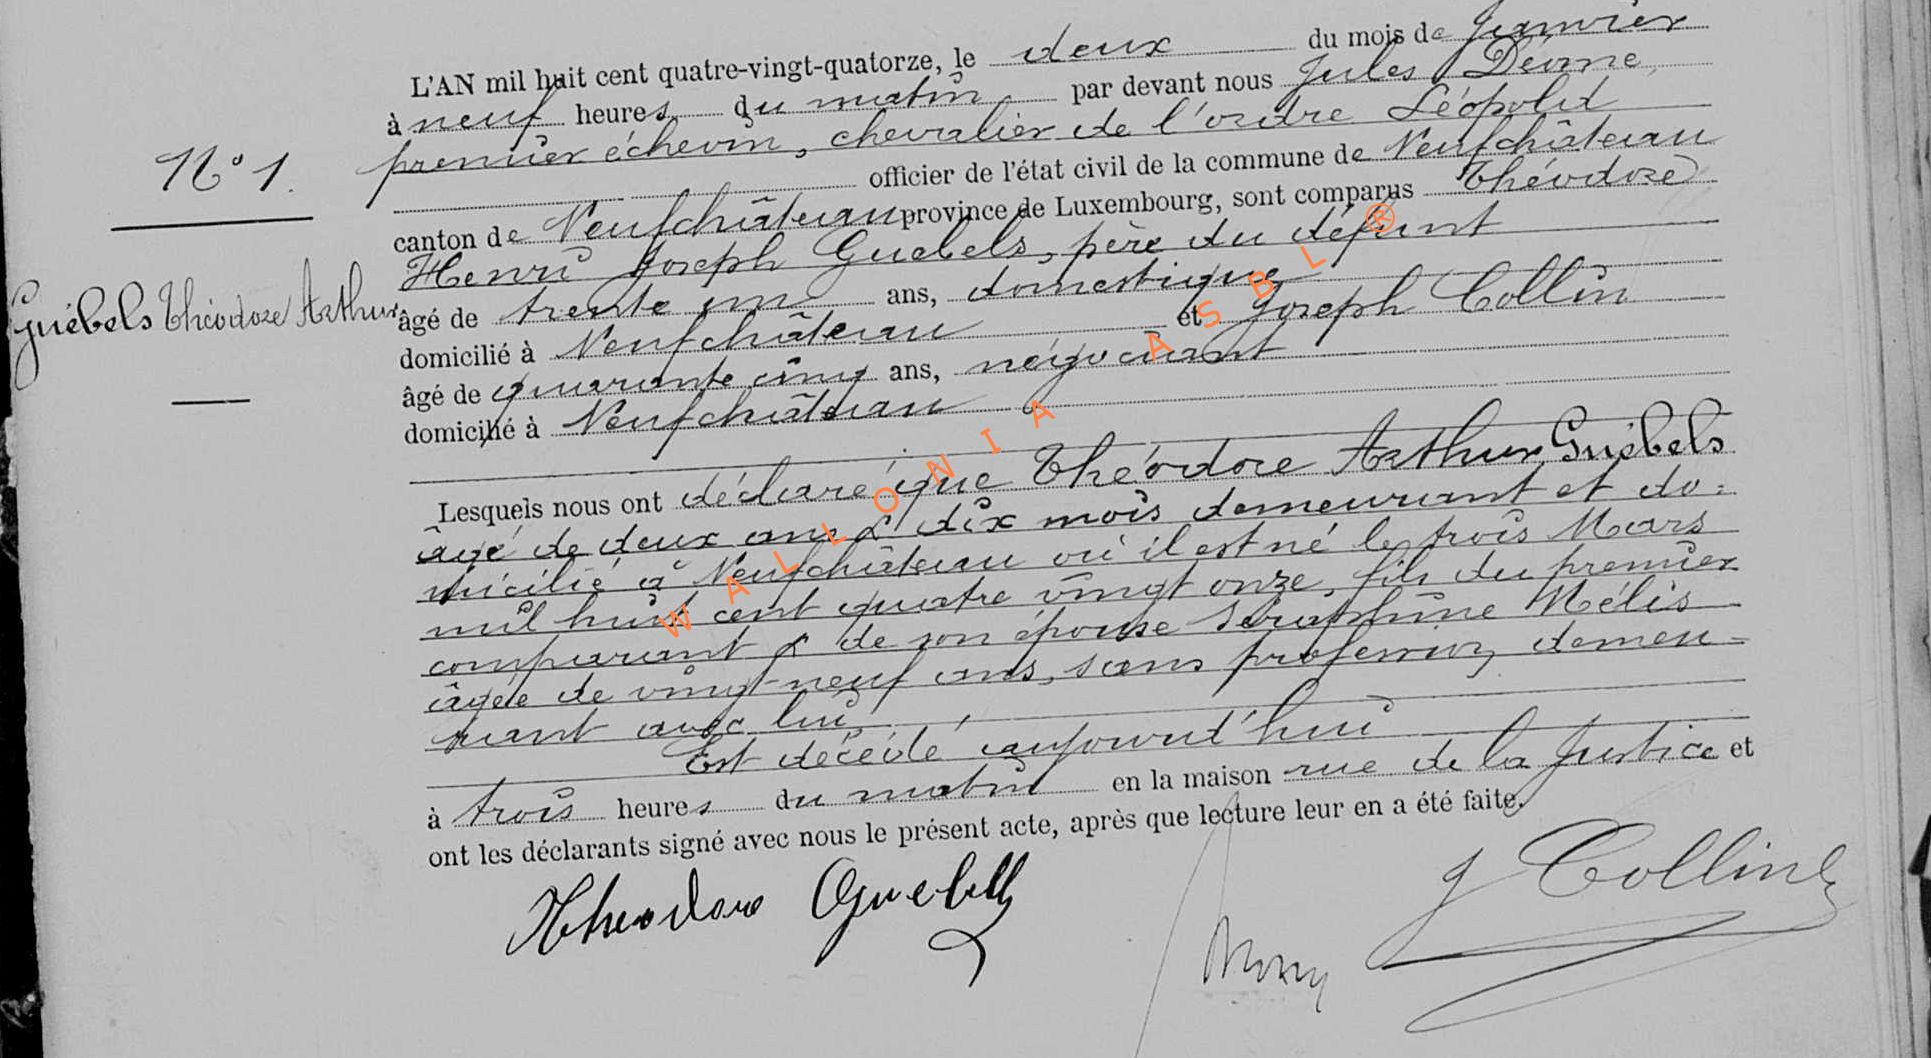 L'AN mil huit cent quatre-vingt-quatorze, le deux du mois de Janvier
à neuf heures du matin par devant nous Jules
premier échevin, chevalier de l'ordre Léopold
officier de l'état civil de la commune de Neufchâteau
canton de Neufchâteau province de Luxembourg, sont comparus Théodore
Henri Joseph Guebels, père du défunt
âgé de trente un ans, domestique
domicilié à Neufchâteau et Joseph Collin
âgé de quarante cinq ans, négociant
domicilié à Neufchâteau
N° 1.
Guébels Théodore Arthur
Lesquels nous ont déclaré que Théodore Arthur Guébels
âgé de deux ans & dix mois demeurant et do=
micilié à Neufchâteau où il est né le trois Mars
mil huit cent quatre vingt onze, fils du premier
comparant & de son épouse Séraphine Mélis
âgée de vingt-neuf ans, sans profession, demeu=
rant avec lui,
Est décédé aujourd'hui
à trois heures du matin en la maison rue de la Justice et
ont les déclarants signé avec nous le présent acte, après que lecture leur en a été faite.
Theodore Guebels
J Collin
WALLONIA ASBL ®